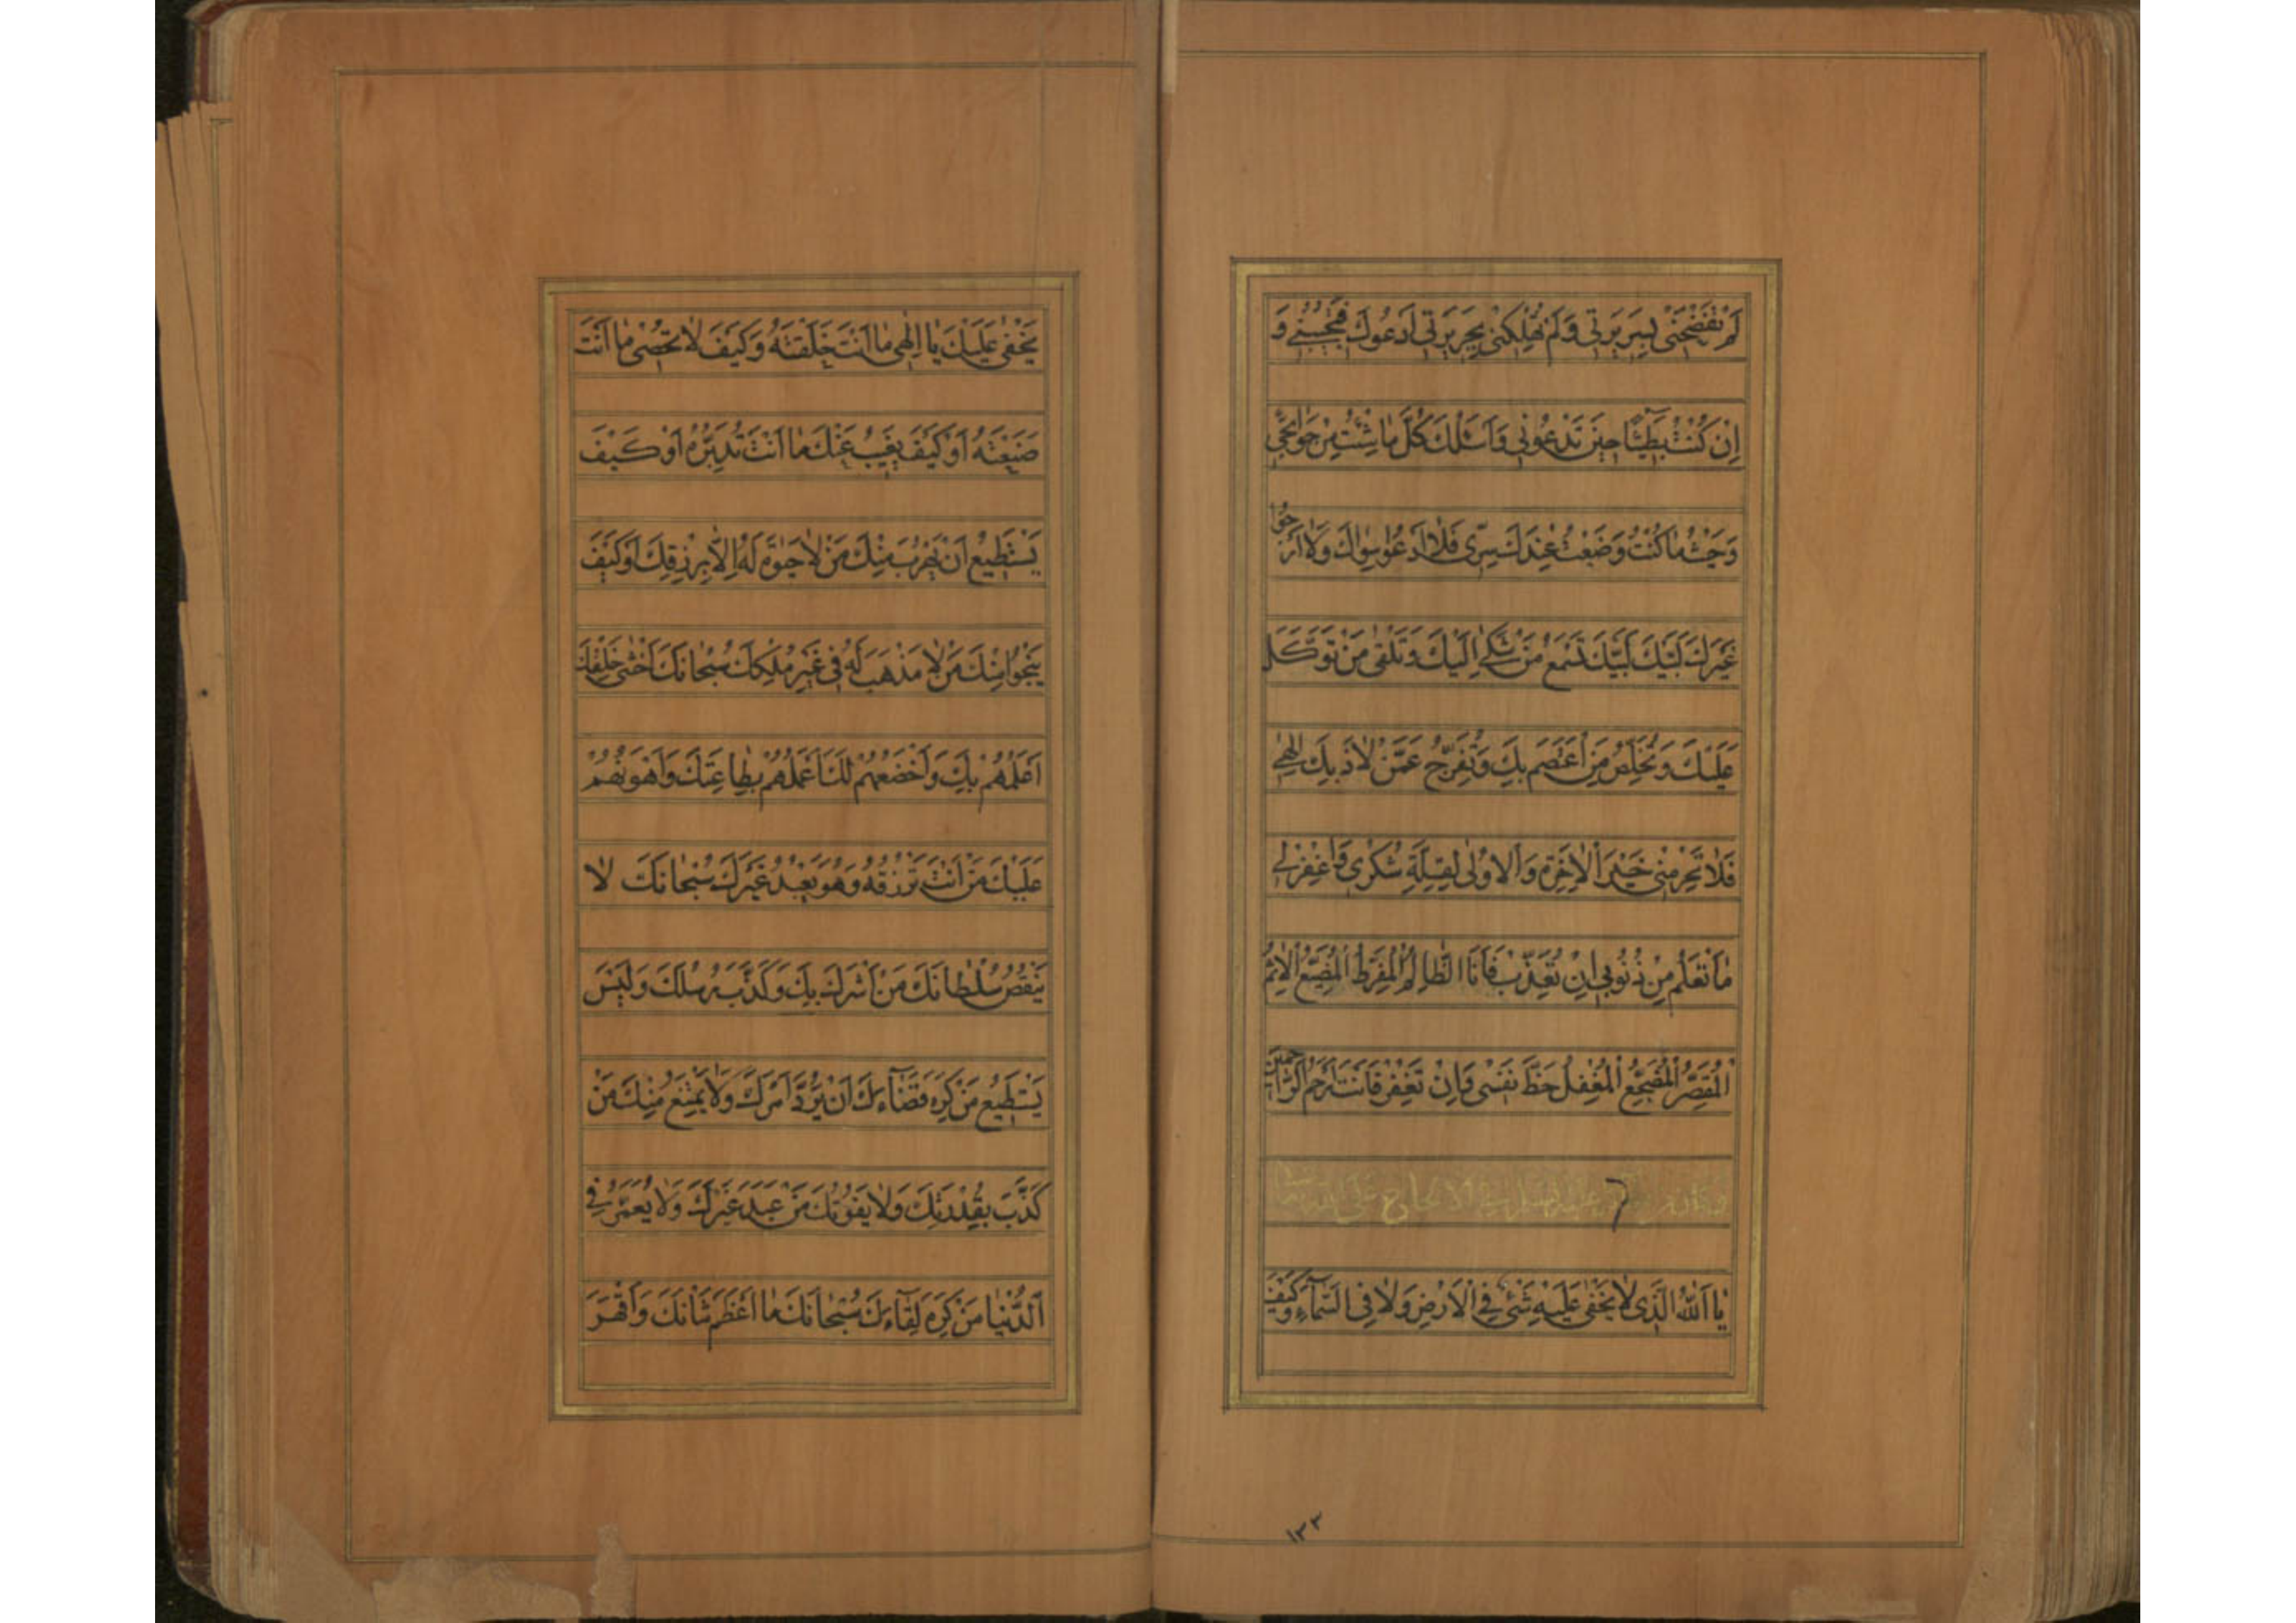 لَمْ تَفْضَحْنِى بِسَرِيرَتِى وَلَمْ تُهْلِكْنِى بِجَرِيرَتِى اَدْعُوكَ فَتُجِيبُنِى وَ
اِنْ كُنْتُ بَطِيئًا حِينَ تَدْعُونِى وَاَسْئَلُكَ كُلَّ مٰا شِئْتُ مِنْ حَوٰائِجِى
وَحَيْثُ مٰا كُنْتُ وَضَعْتُ عِنْدَكَ سِرِّى فَلاٰ اَدْعُو سِوٰاكَ وَلاٰ اَرْجُو
غَيْرَكَ لَبَّيْكَ لَبَّيْكَ تَسْمَعُ مَنْ شَكٰى اِلَيْكَ وَتَلْقٰى مَنْ تَوَكَّلَ
عَلَيْكَ وَتُخَلِّصُ مَنِ اعْتَصَمَ بِكَ وَتُفَرِّجُ عَمَّنْ لاٰذَ بِكَ اِلٰهِى
فَلاٰ تَحْرِمْنِى خَيْرَ الْاٰخِرَةِ وَالْاُولٰى لِقِلَّةِ شُكْرِى وَاغْفِرْ لِى
مٰا تَعْلَمُ مِنْ ذُنُوبِى اِنْ تُعَذِّبْ فَاَنَا الظّٰالِمُ الْمُفَرِّطُ الْمُضَيِّعُ الْاٰثِمُ
الْمُقَصِّرُ الْمُضَجِّعُ الْمُغْفِلُ حَظَّ نَفْسِى وَاِنْ تَغْفِرْ فَاَنْتَ اَرْحَمُ الرّٰاحِمِينَ
وكان من دعائه عليه السلام فى الالحاح على الله تعالى
يٰا اَللّٰهُ الَّذِى لاٰ يَخْفٰى عَلَيْهِ شَىْءٌ فِى الْاَرْضِ وَلاٰ فِى السَّمٰآءِ وَكَيْفَ
١٣٣
يَخْفٰى عَلَيْكَ يٰا اِلٰهِى مٰا اَنْتَ خَلَقْتَهُ وَكَيْفَ لاٰ تُحْصِى مٰا اَنْتَ
صَنَعْتَهُ اَوْ كَيْفَ يَغِيبُ عَنْكَ مٰا اَنْتَ تُدَبِّرُهُ اَوْ كَيْفَ
يَسْتَطِيعُ اَنْ يَهْرُبَ مِنْكَ مَنْ لاٰ حَيٰوةَ لَهُ اِلاّٰ بِرِزْقِكَ اَوْ كَيْفَ
يَنْجُوا مِنْكَ مَنْ لاٰ مَذْهَبَ لَهُ فِى غَيْرِ مُلْكِكَ سُبْحٰانَكَ اَخْشٰى خَلْقِكَ
اَعْلَمُهُمْ بِكَ وَاَخْضَعُهُمْ لَكَ اَعْمَلُهُمْ بِطٰاعَتِكَ وَاَهْوَنُهُمْ
عَلَيْكَ مَنْ اَنْتَ تَرْزُقُهُ وَهُوَ يَعْبُدُ غَيْرَكَ سُبْحٰانَكَ لاٰ
يَنْقُصُ سُلْطٰانَكَ مَنْ اَشْرَكَ بِكَ وَكَذَّبَ رُسُلَكَ وَلَيْسَ
يَسْتَطِيعُ مَنْ كَرِهَ قَضٰآءَكَ اَنْ يَرُدَّ اَمْرَكَ وَلاٰ يَمْتَنِعُ مِنْكَ مَنْ
كَذَّبَ بِقُدْرَتِكَ وَلاٰ يَفُوتُكَ مَنْ عَبَدَ غَيْرَكَ وَلاٰ يُعَمَّرُ فِى
الدُّنْيٰا مَنْ كَرِهَ لِقٰآءَكَ سُبْحٰانَكَ مٰا اَعْظَمَ شَانَكَ وَاَقْهَرَ